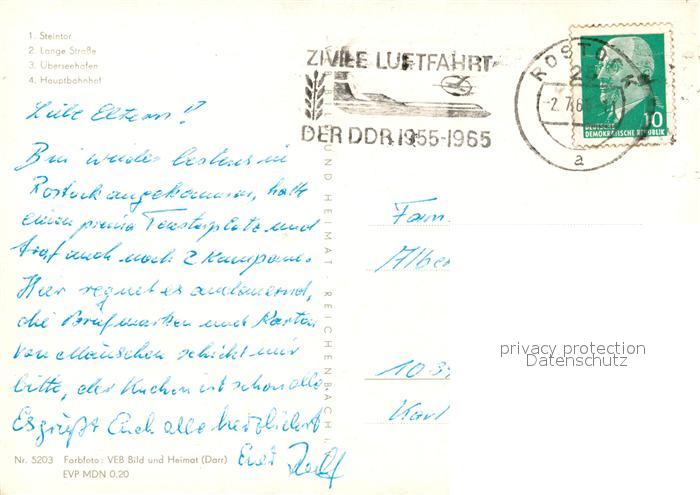 1. Steintor
2. Lange Straße
3. Überseehafen
4. Hauptbahnhof
ZIVILE LUFTFAHRT
DER DDR 1955-1965
ROSTOCK
-2.7.6
a
10
DEUTSCHE
DEMOKRATISCHE REPUBLIK
Liebe Eltern!
Bin wieder bestens in
Rostock angekommen, hatte
einen prima Fensterplatz und
traf auch noch 2 Kumpane.
Hier regnet es andauernd,
die Briefmarken und Karten
von Mäuschen schickt mir
bitte, der Kuchen ist schon alle
Es grüßt Euch alle herzlichst
Euer
UND HEIMAT REICHENBACH
Fam.
Alber
10
Karl
privacy protection
Datenschutz
Nr. 5203 Farbfoto: VEB Bild und Heimat (Darr)
EVP MDN 0,20